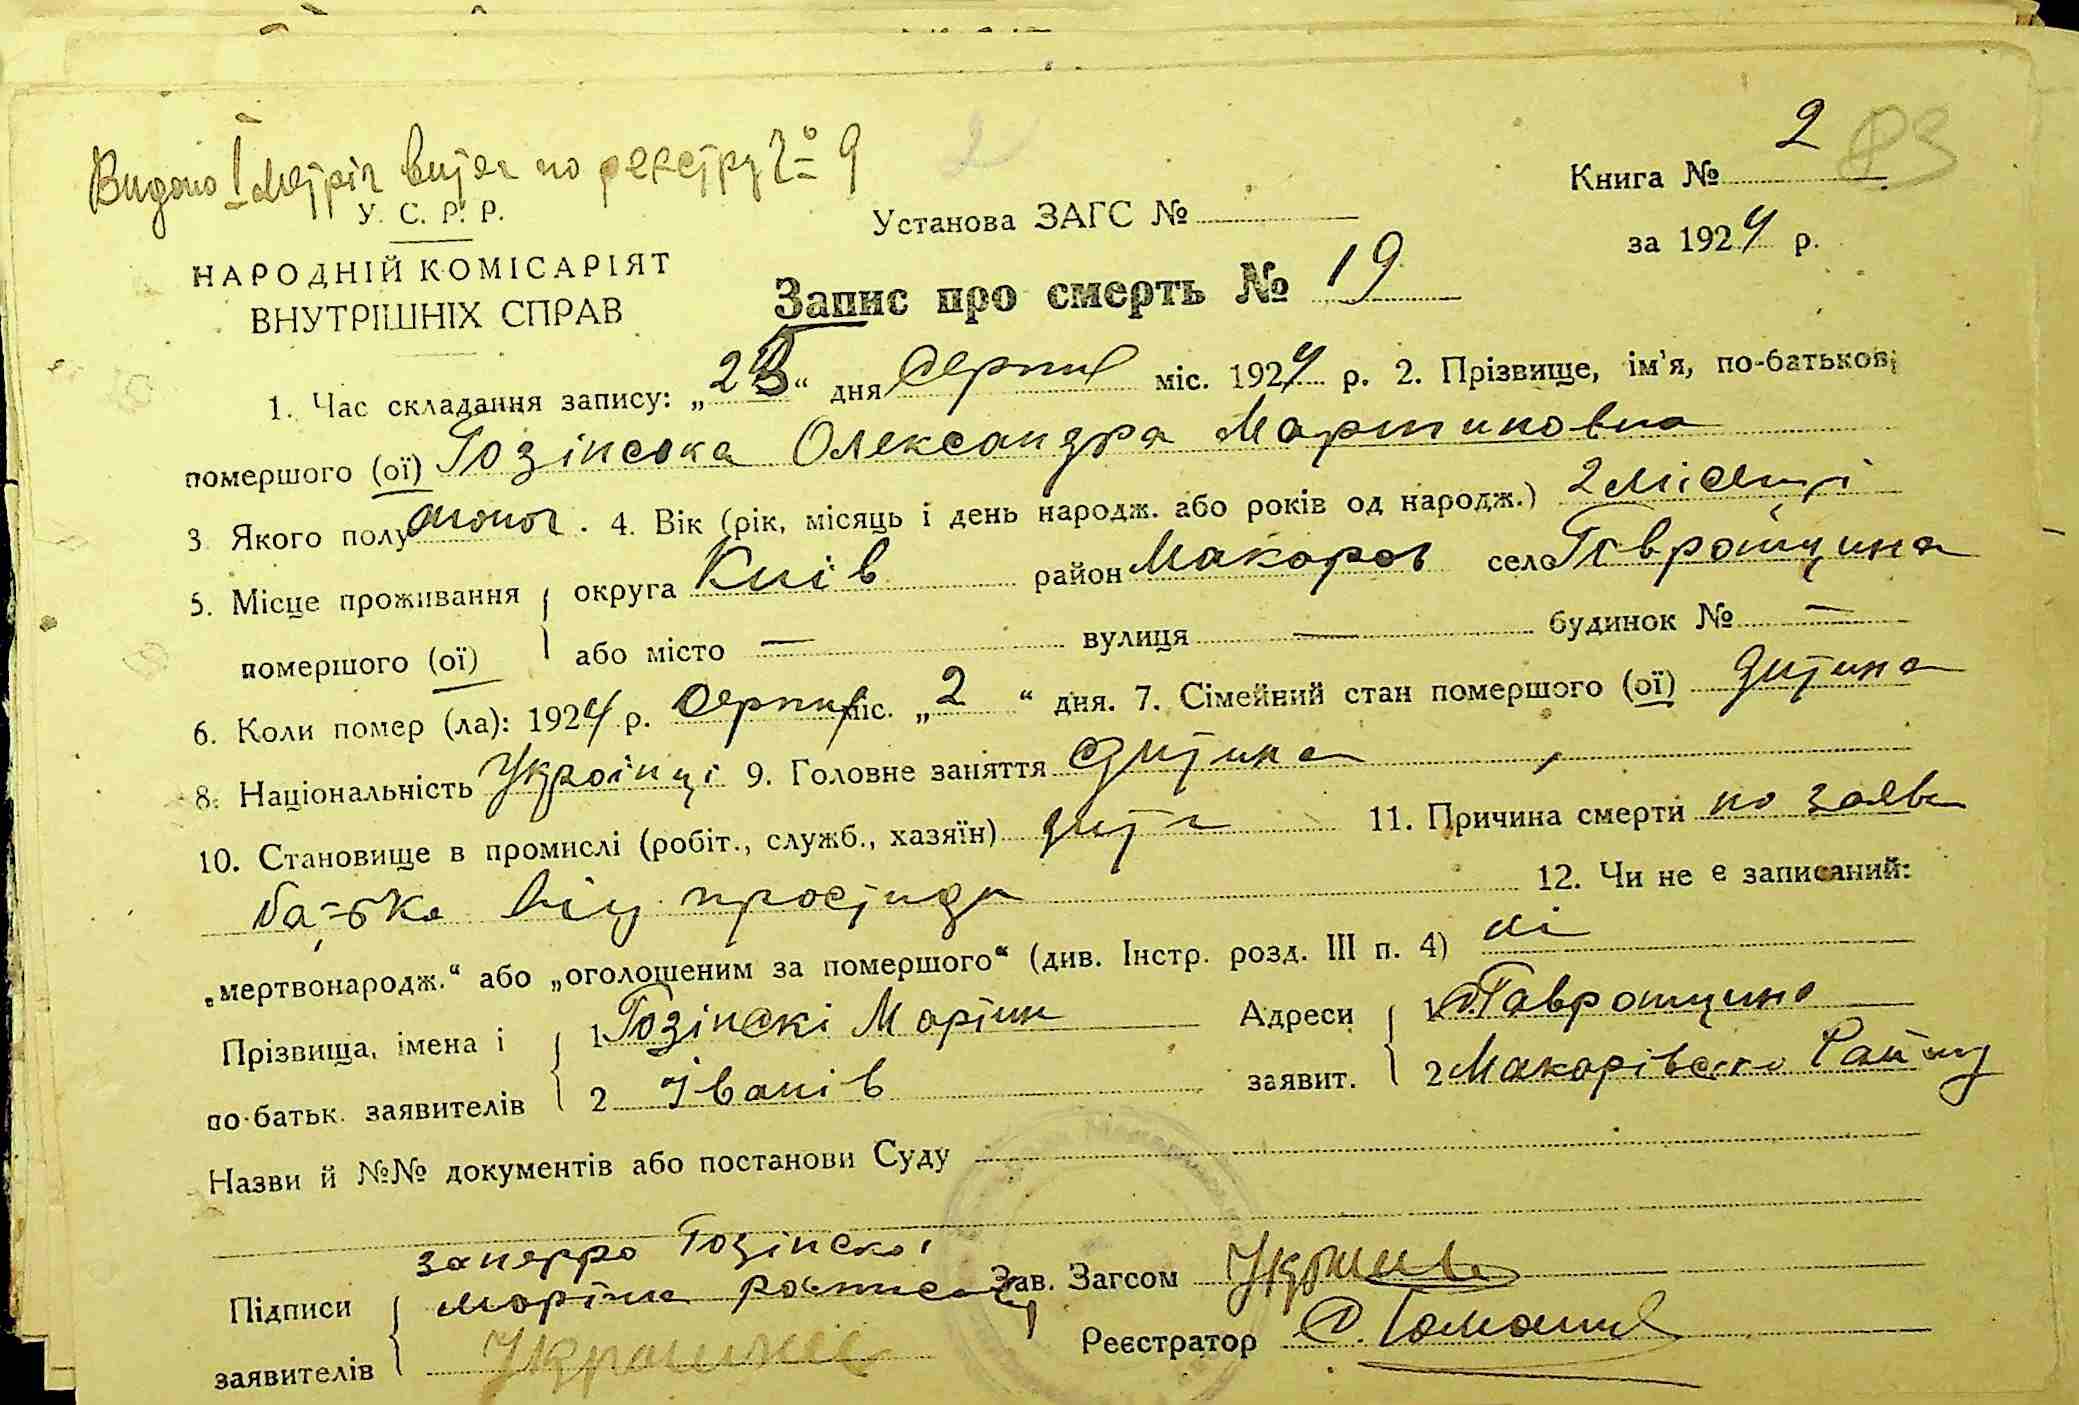 Видано 1 метріч витяг по реєстру № 9
2
83
У. С. Р. Р.
НАРОДНІЙ КОМІСАРІЯТ
ВНУТРІШНІХ СПРАВ
Установа ЗАГС №
Книга № 2
за 1924 р.
Запис про смерть № 19
1. Час складання запису: „ “ дня серпня міс. 1924 р. 2. Прізвище, ім'я, по-батькові
помершого (ої) Гозінська Олександра Мартиновна
3. Якого полу жіноч. 4. Вік (рік, місяць і день народж. або років од народж.) 2 місяці
5. Місце проживання округа Київ район Макаров село Гавронщина
помершого (ої) або місто — вулиця — будинок № —
6. Коли помер (ла): 1924 р. серпня міс. „2“ дня. 7. Сімейний стан помершого (ої) дитина
8. Національність Українці 9. Головне заняття дитина
10. Становище в промислі (робіт., служб., хазяїн) 11. Причина смерти по заяві
батька від простуди
12. Чи не є записаний:
„мертвонародж.“ або „оголошеним за помершого“ (див. Інстр. розд. III п. 4) ні
Прізвища, імена і 1 Гозінскі Мартин Адреси 1 с. Гавронщина
по-батьк. заявителів 2 Іванів заявит. 2 Макарівсько Району
Назви й №№ документів або постанови Суду
Гозінскої
Підписи Зав. Загсом
заявителів Реєстратор